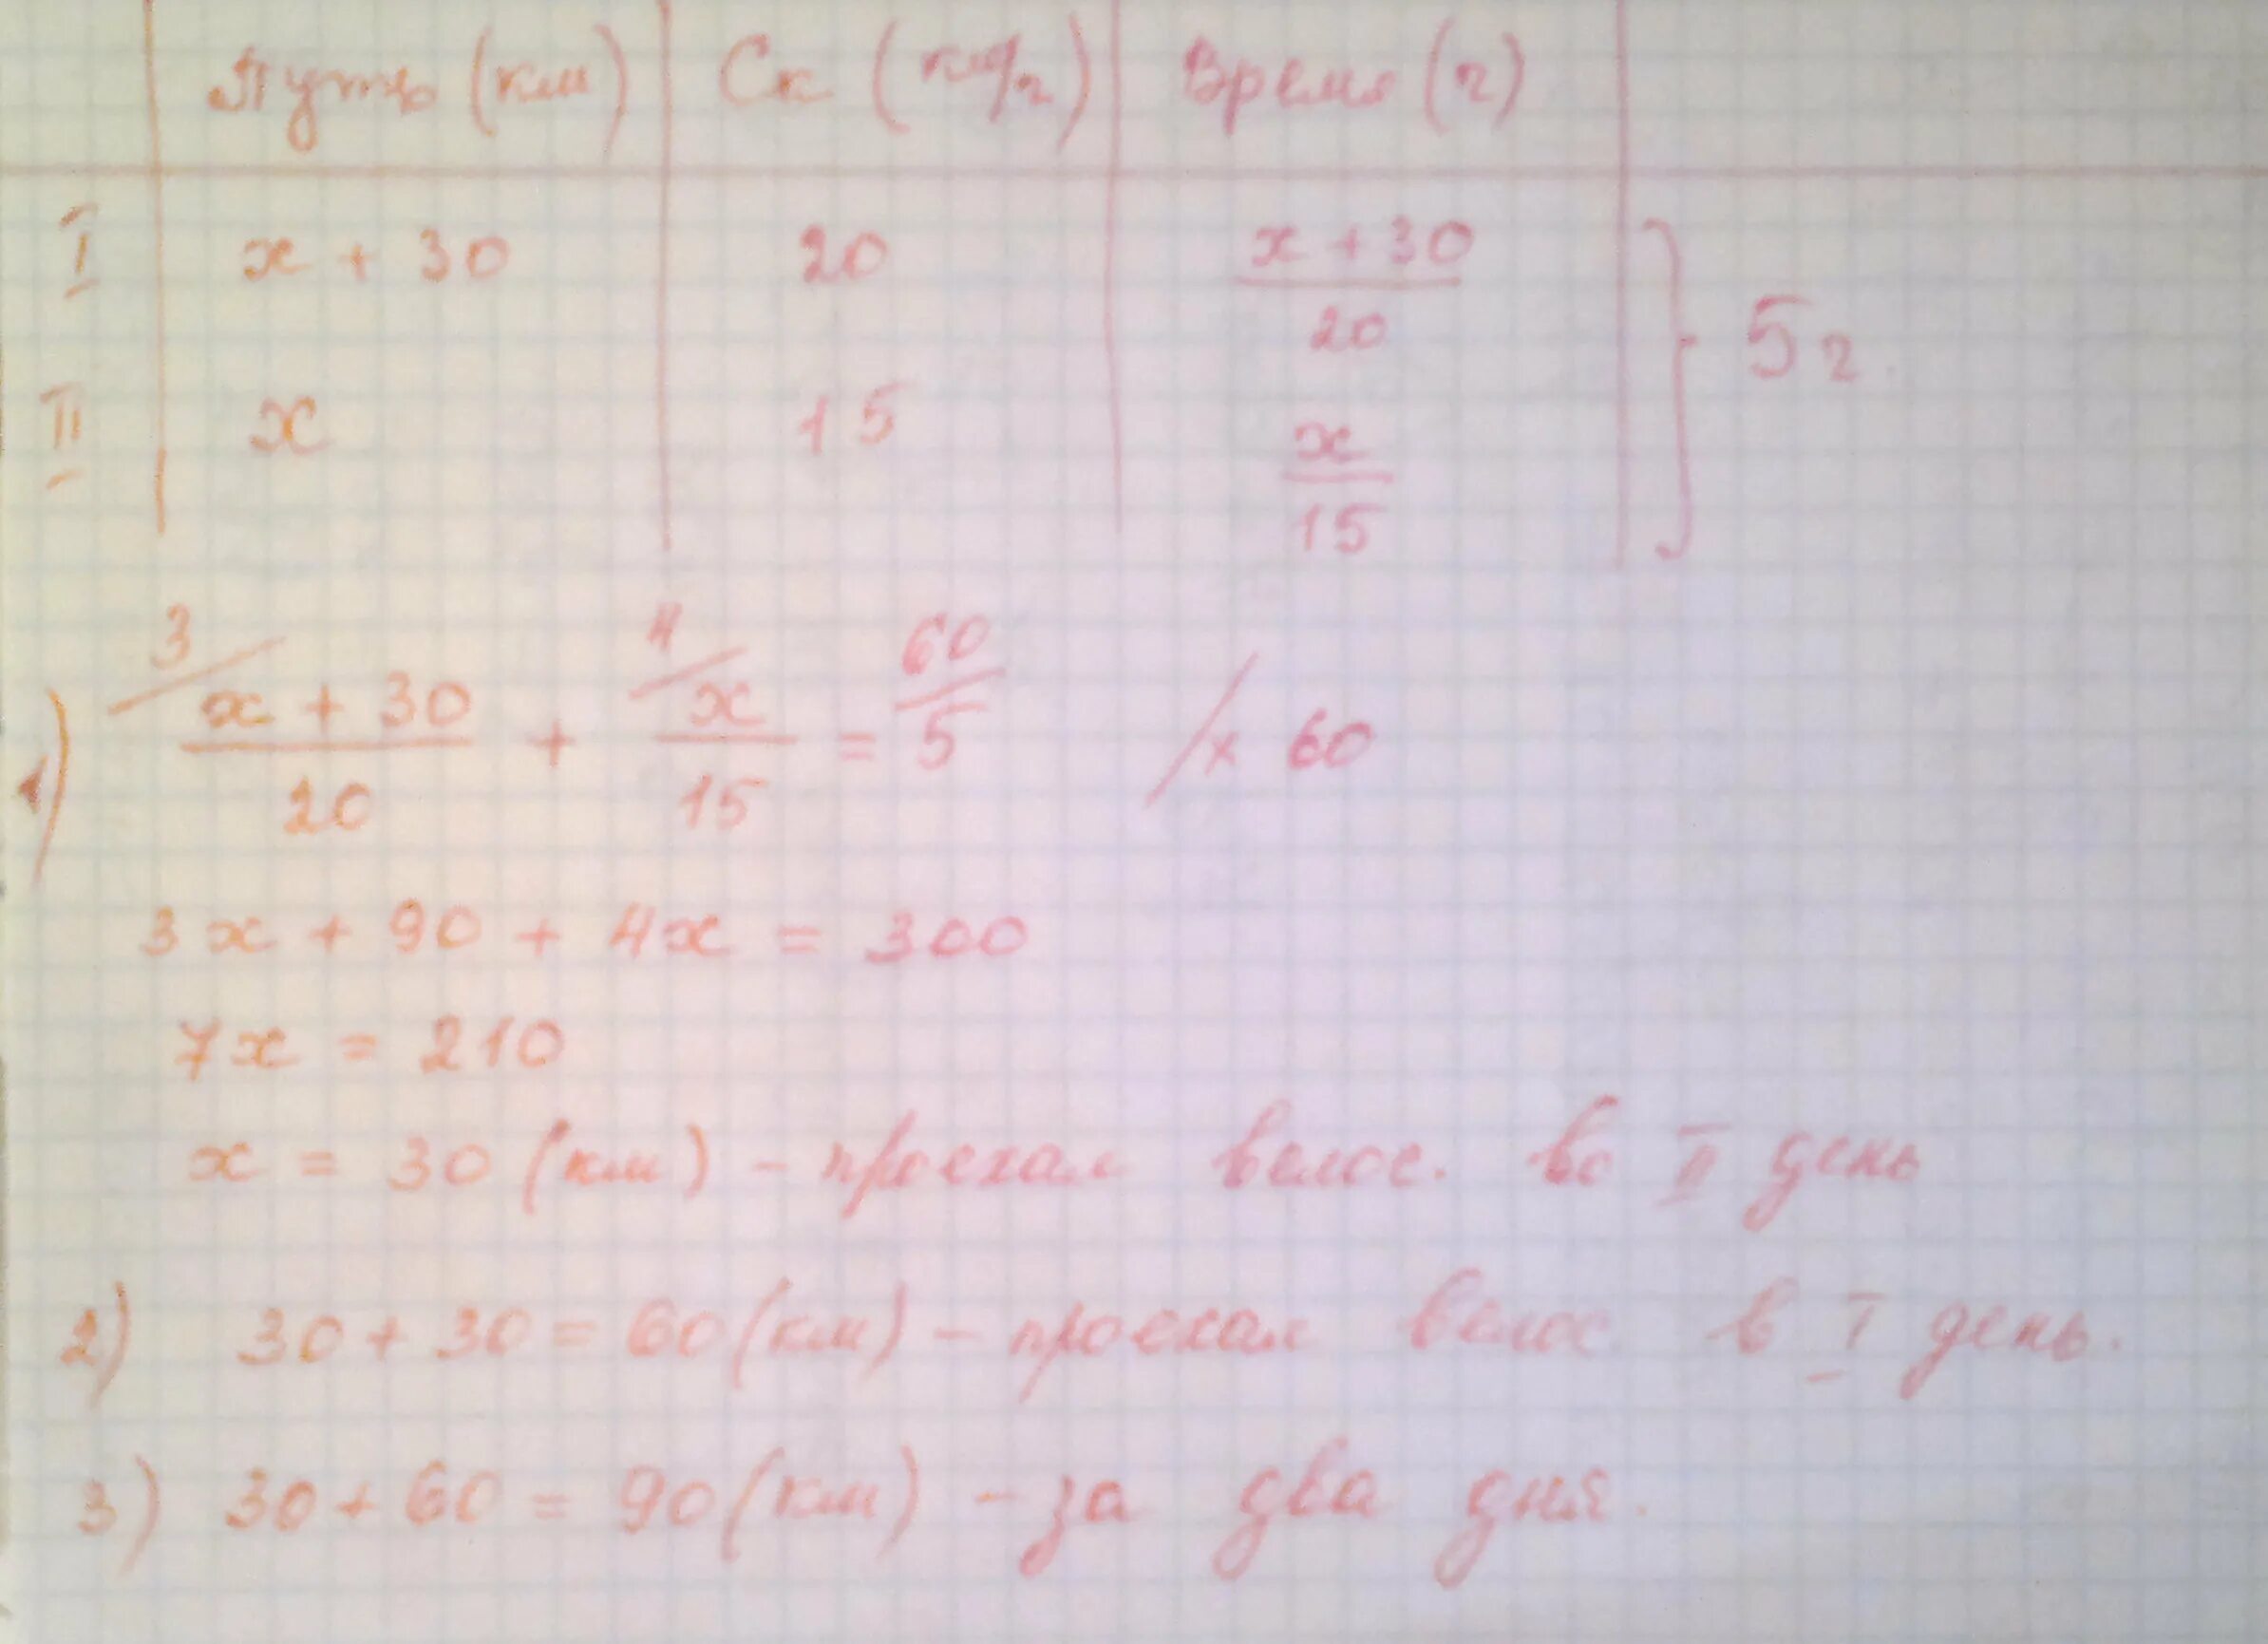 Путь (км) Ск (км/г) Время (г)
I x + 30 20 x + 30 / 20
5 г.
II x 15 x / 15
3 4 60
1) x + 30 / 20 + x / 15 = 5 / × 60
3x + 90 + 4x = 300
7x = 210
x = 30 (км) - проехал велос. во II день
2) 30 + 30 = 60 (км) - проехал велос. в I день.
3) 30 + 60 = 90 (км) - за два дня.